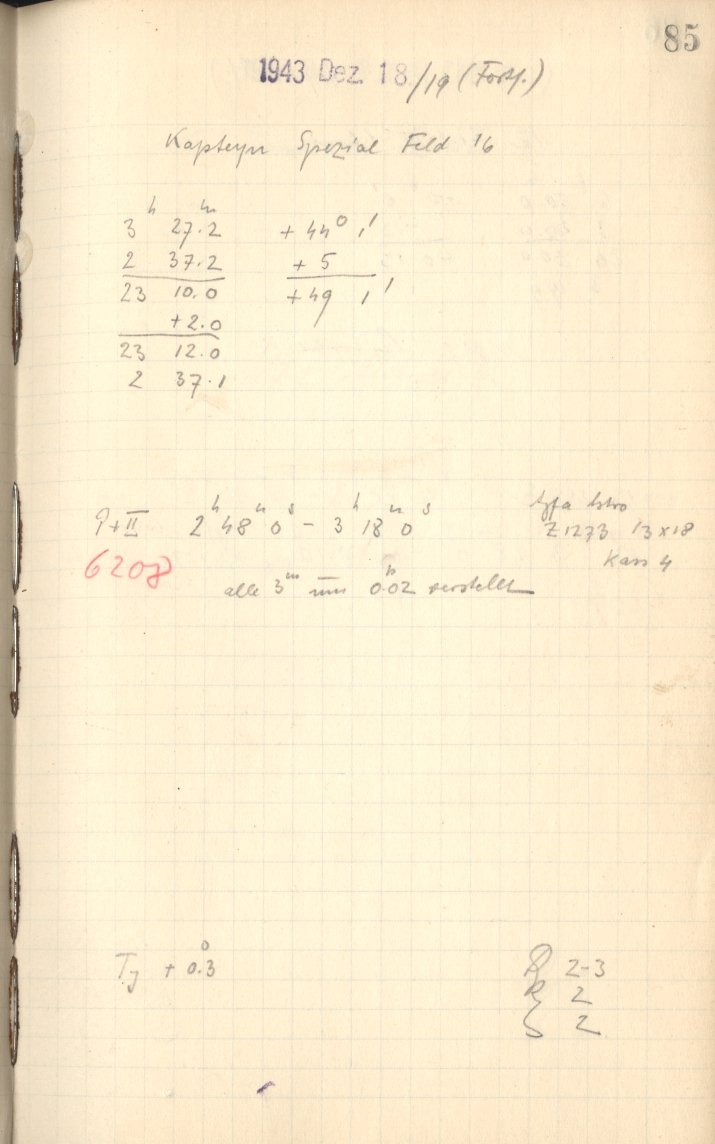 85
1943 Dez. 18/19 (Forts.)
Kapteyn Spezial Feld 16
3ʰ 27ᵐ.2 + 44° 1'
2 37.2 + 5
23 10.0 + 49 1'
+2.0
23 12.0
2 37.1
P+II 2ʰ 48ᵐ 0ˢ – 3ʰ 18ᵐ 0ˢ Agfa Astro
Z1273 13x18
6208 Kass 4
alle 3ᵐ um 0.02 verstellt
T + 0°.3
2-3
R 2
S 2